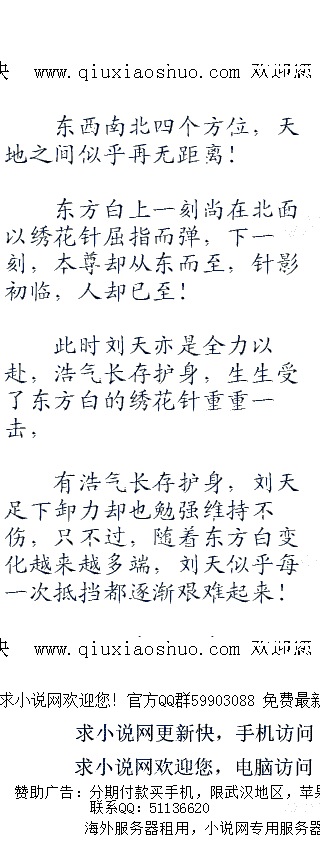 快 www.qiuxiaoshuo.com 欢迎您
东西南北四个方位，天
地之间似乎再无距离！
东方白上一刻尚在北面
以绣花针屈指而弹，下一
刻，本尊却从东而至，针影
初临，人却已至！
此时刘天亦是全力以
赴，浩气长存护身，生生受
了东方白的绣花针重重一
击，
有浩气长存护身，刘天
足下卸力却也勉强维持不
伤，只不过，随着东方白变
化越来越多端，刘天似乎每
一次抵挡都逐渐艰难起来！
快 www.qiuxiaoshuo.com 欢迎您
求小说网欢迎您！官方QQ群59903088 免费最新
求小说网更新快，手机访问
求小说网欢迎您，电脑访问
赞助广告：分期付款买手机，限武汉地区，苹果
联系QQ：51136620
海外服务器租用，小说网专用服务器